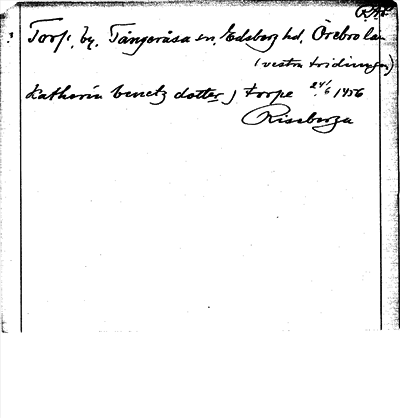 R.A.P.
Torp, by, Tångeråsa sn, Edsberg hd, Örebro län
(vestra tridiungen)
Katherin benctz dotter j torpe 24/6 1456
Riseberga